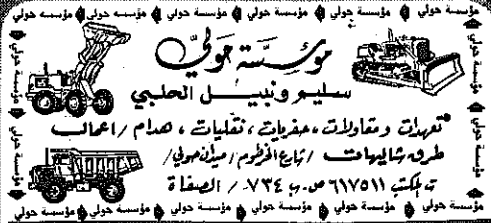 مؤسسة حولي مؤسسة حولي مؤسسة حولي مؤسسة حولي مؤسسة حولي
مؤسسة حولي
سليم ونبيل الحلبي
تعهدات ومقاولات، حفريات، نقليات، هدام / اعمال
طرق شاليهات / شارع الخرطوم / ميدان حولي /
ت المكتب ٦١٧٥١١ ص.ب ٧٣٤ / الصفاة
مؤسسة حولي مؤسسة حولي مؤسسة حولي مؤسسة حولي مؤسسة حولي